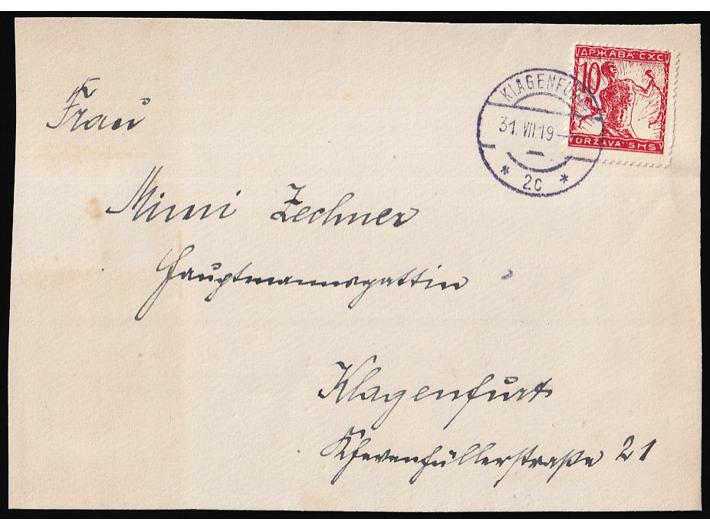 ДРЖАВА СХС
10
DRŽAVA SHS
KLAGENFURT
31.VII.19
* 2c *
Frau
Mimi Zechner
Hauptmannsgattin
Klagenfurt
Khevenhüllerstraße 21